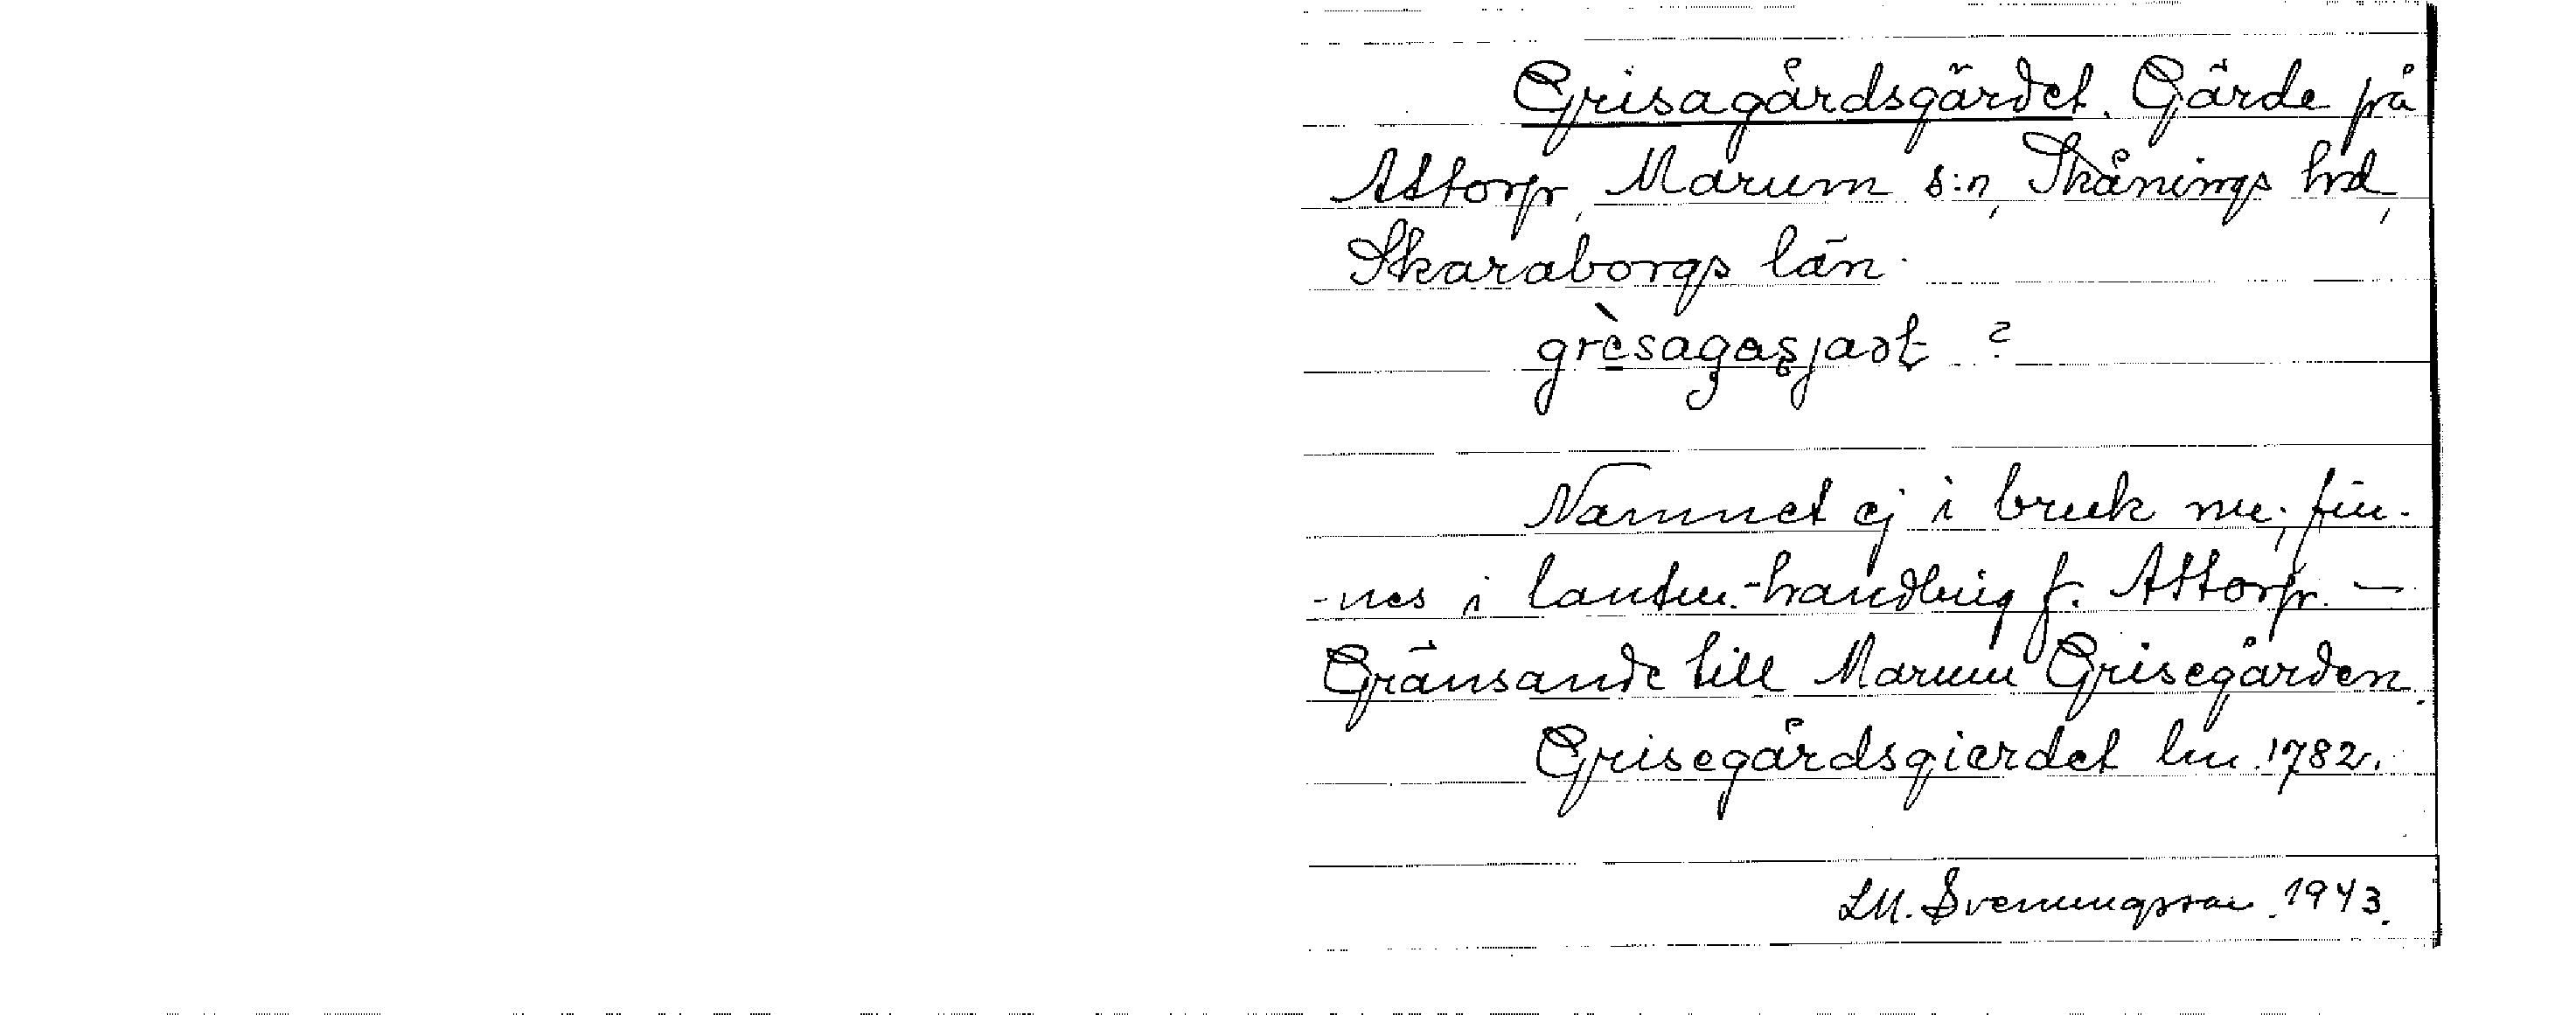 Grisagårdsgärdet. Gärde på
Attorp, Marum s:n, Skånings hd,
Skaraborgs län.
grèsagasjaat ?
Namnet ej i bruk nu; fin-
-nes i lantm.-handling f. Attorp. —
Gränsande till Marum Grisegården.
Grisegårdsgierdet lm. 1782.
LM. Svenungsson 1943.